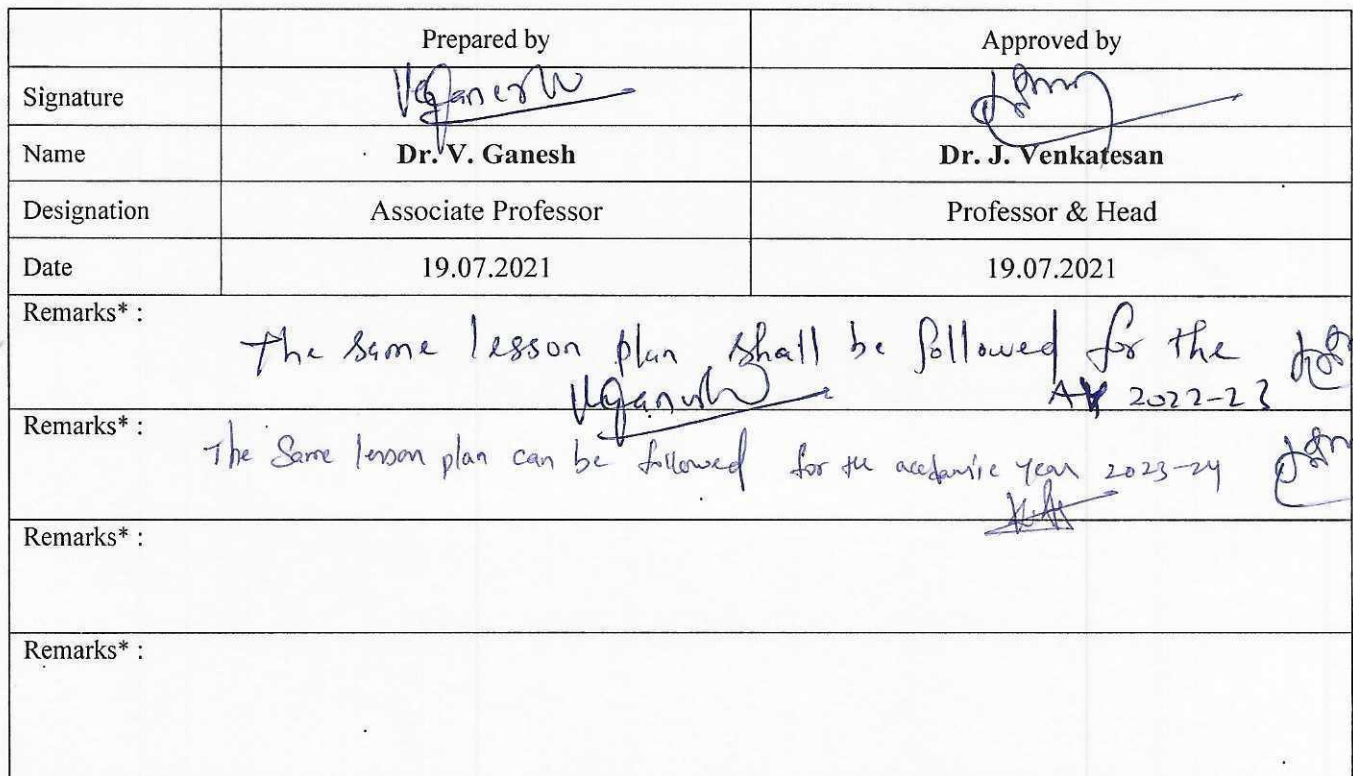 Prepared by Approved by
Signature VGanesh
Name Dr. V. Ganesh Dr. J. Venkatesan
Designation Associate Professor Professor & Head
Date 19.07.2021 19.07.2021
Remarks* :
The same lesson plan shall be followed for the
VGanesh AY 2022-23
Remarks* :
The Same lesson plan can be followed for the academic year 2023-24
Remarks* :
Remarks* :